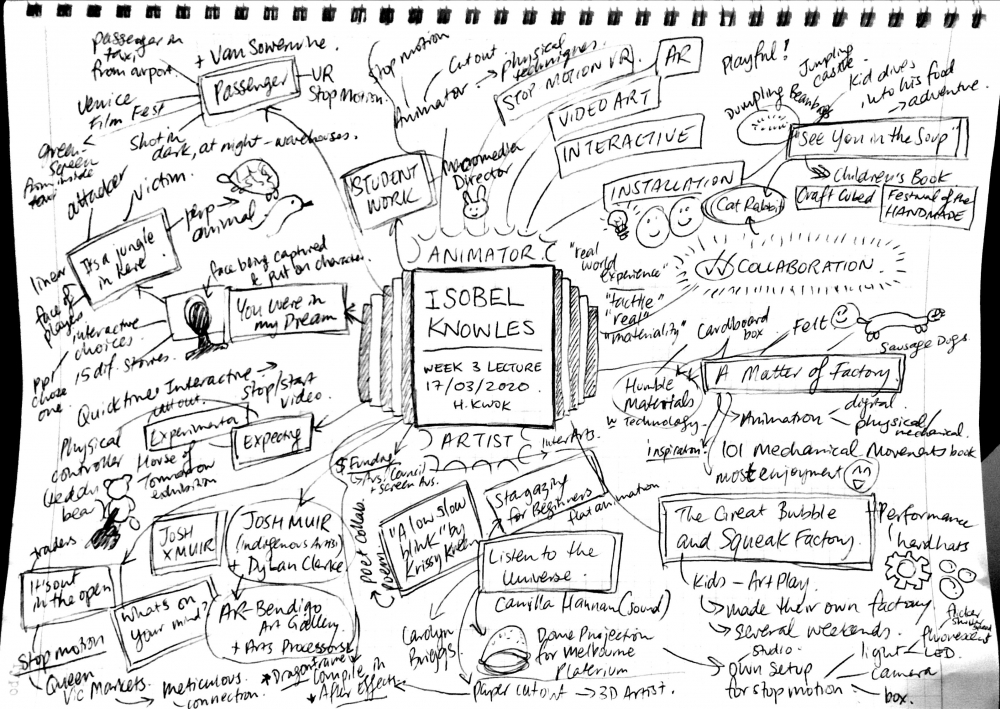 passenger in
taxi,
from airport.
+ Van Sowerwine.
Passenger
VR
Stop Motion.
Venice
Film Fest
Shot in
dark, at night - warehouses.
Green-
Screen
from inside
taxi
attacker
victim.
prep
animal
It's a jungle
in here.
linear
face of
players
interactive
choices.
15 dif. stories.
ppl
chose
one.
face being captured
& put on character.
You were in
my Dream
Quicktime Interactive →
cut out.
stop/start
video.
Experimental
Expecting
Physical
controller
teddy
bear
House of
Tomorrow
exhibition
Stop motion
Cutout
Animator → physical
techniques
STOP MOTION VR
AR
VIDEO ART
INTERACTIVE
INSTALLATION
STUDENT
WORK
Macromedia
Director
ANIMATOR
ISOBEL
KNOWLES
WEEK 3 LECTURE
17/03/2020
H. KWOK
ARTIST
Playful!
Jumping
castle
Dumpling Beanbag
Kid dives
into his food
→ adventure.
"See You in the Soup"
Children's Book
Cat Rabbit
Craft Cubed
Festival of the
HANDMADE
COLLABORATION
"real
world
experience"
"tactile"
"real"
"materiality"
Cardboard
box
Felt
Sausage Dogs
A Matter of Factory
Humble
Materials
w Technology.
Animation
digital
physical/
mechanical.
inspiration
101 Mechanical Movements book
most enjoyment
The Great Bubble
and Squeak Factory.
Performance
hardhats
Kids - ArtPlay
→ made their own factory
→ several weekends.
studio
own setup
for stop motion
light
fluorescent
LED.
camera
box.
$ Funding
→ Aus. Council
+ Screen Aus.
InterArts.
Stargazing
for Beginners
flat animation
Poet collab.
Poem
"A low slow
blink" by
Krissy Kneen
Listen to the
Universe.
Camilla Hannan (sound)
Carolyn
Briggs
Dome Projection
for Melbourne
Planetarium
paper cutout → 3D Artist.
JOSH
X MUIR
JOSH MUIR
(Indigenous Artist)
+ Dylan Clarke
traders
It's out
in the open
What's on
your mind?
AR - Bendigo
Art Gallery
+ Arts Processors
stop motion
Queen
Vic Markets.
→ meticulous
connection.
*Dragonframe
Compile in
After Effects